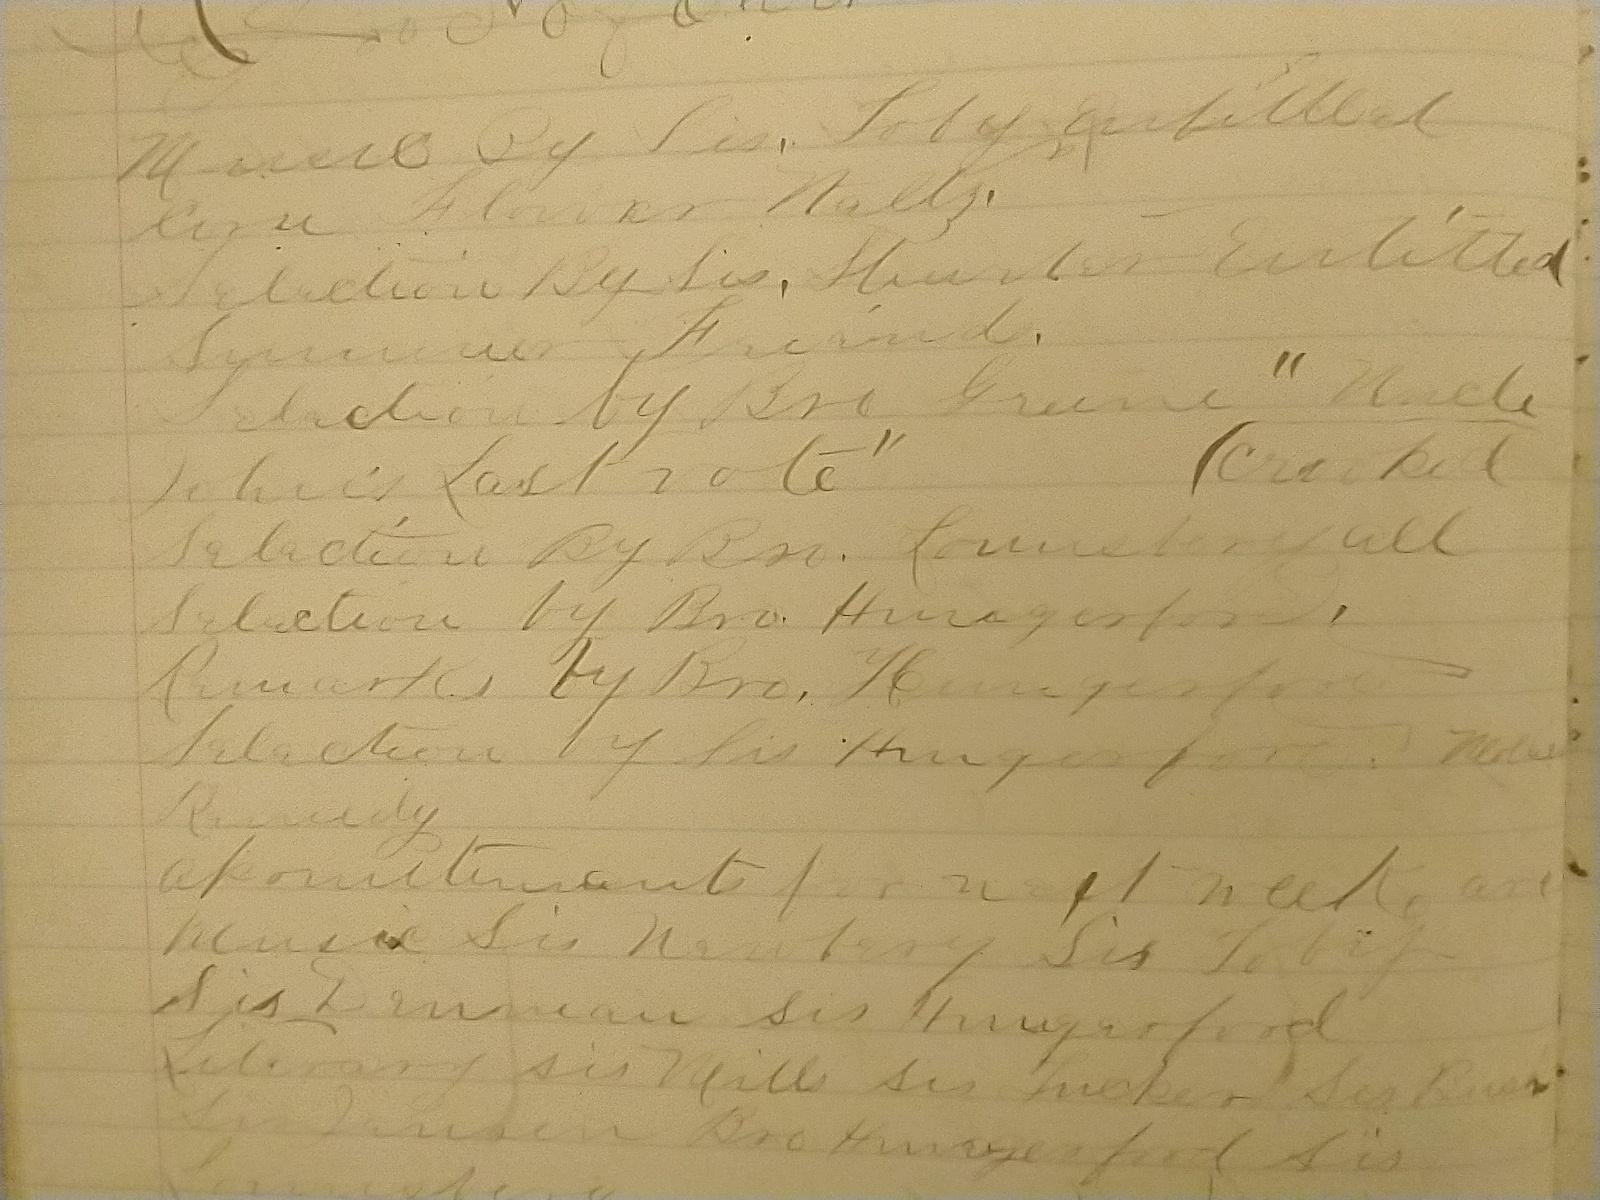 Music By Sis. Toby Entitled
Corn Flower Waltz.
Selection By Sis. Hunter Entitled
Summer Friend.
Selection by Bro Greene " Uncle
John's Last vote" (crooked
Selection By Bro. Lounsbery all
Selection by Bro. Hungerford.
Remarks by Bro. Hungerford
Selection by Sis Hungerford.
Remedy
apointments for next week, are
Music Sis Newbery Sis Toby
Sis Denman Sis Hungerford
Literary Sis Mills Sis Tucker Sis
Sis Jansen Bro Hungerford Sis
Lounsbery